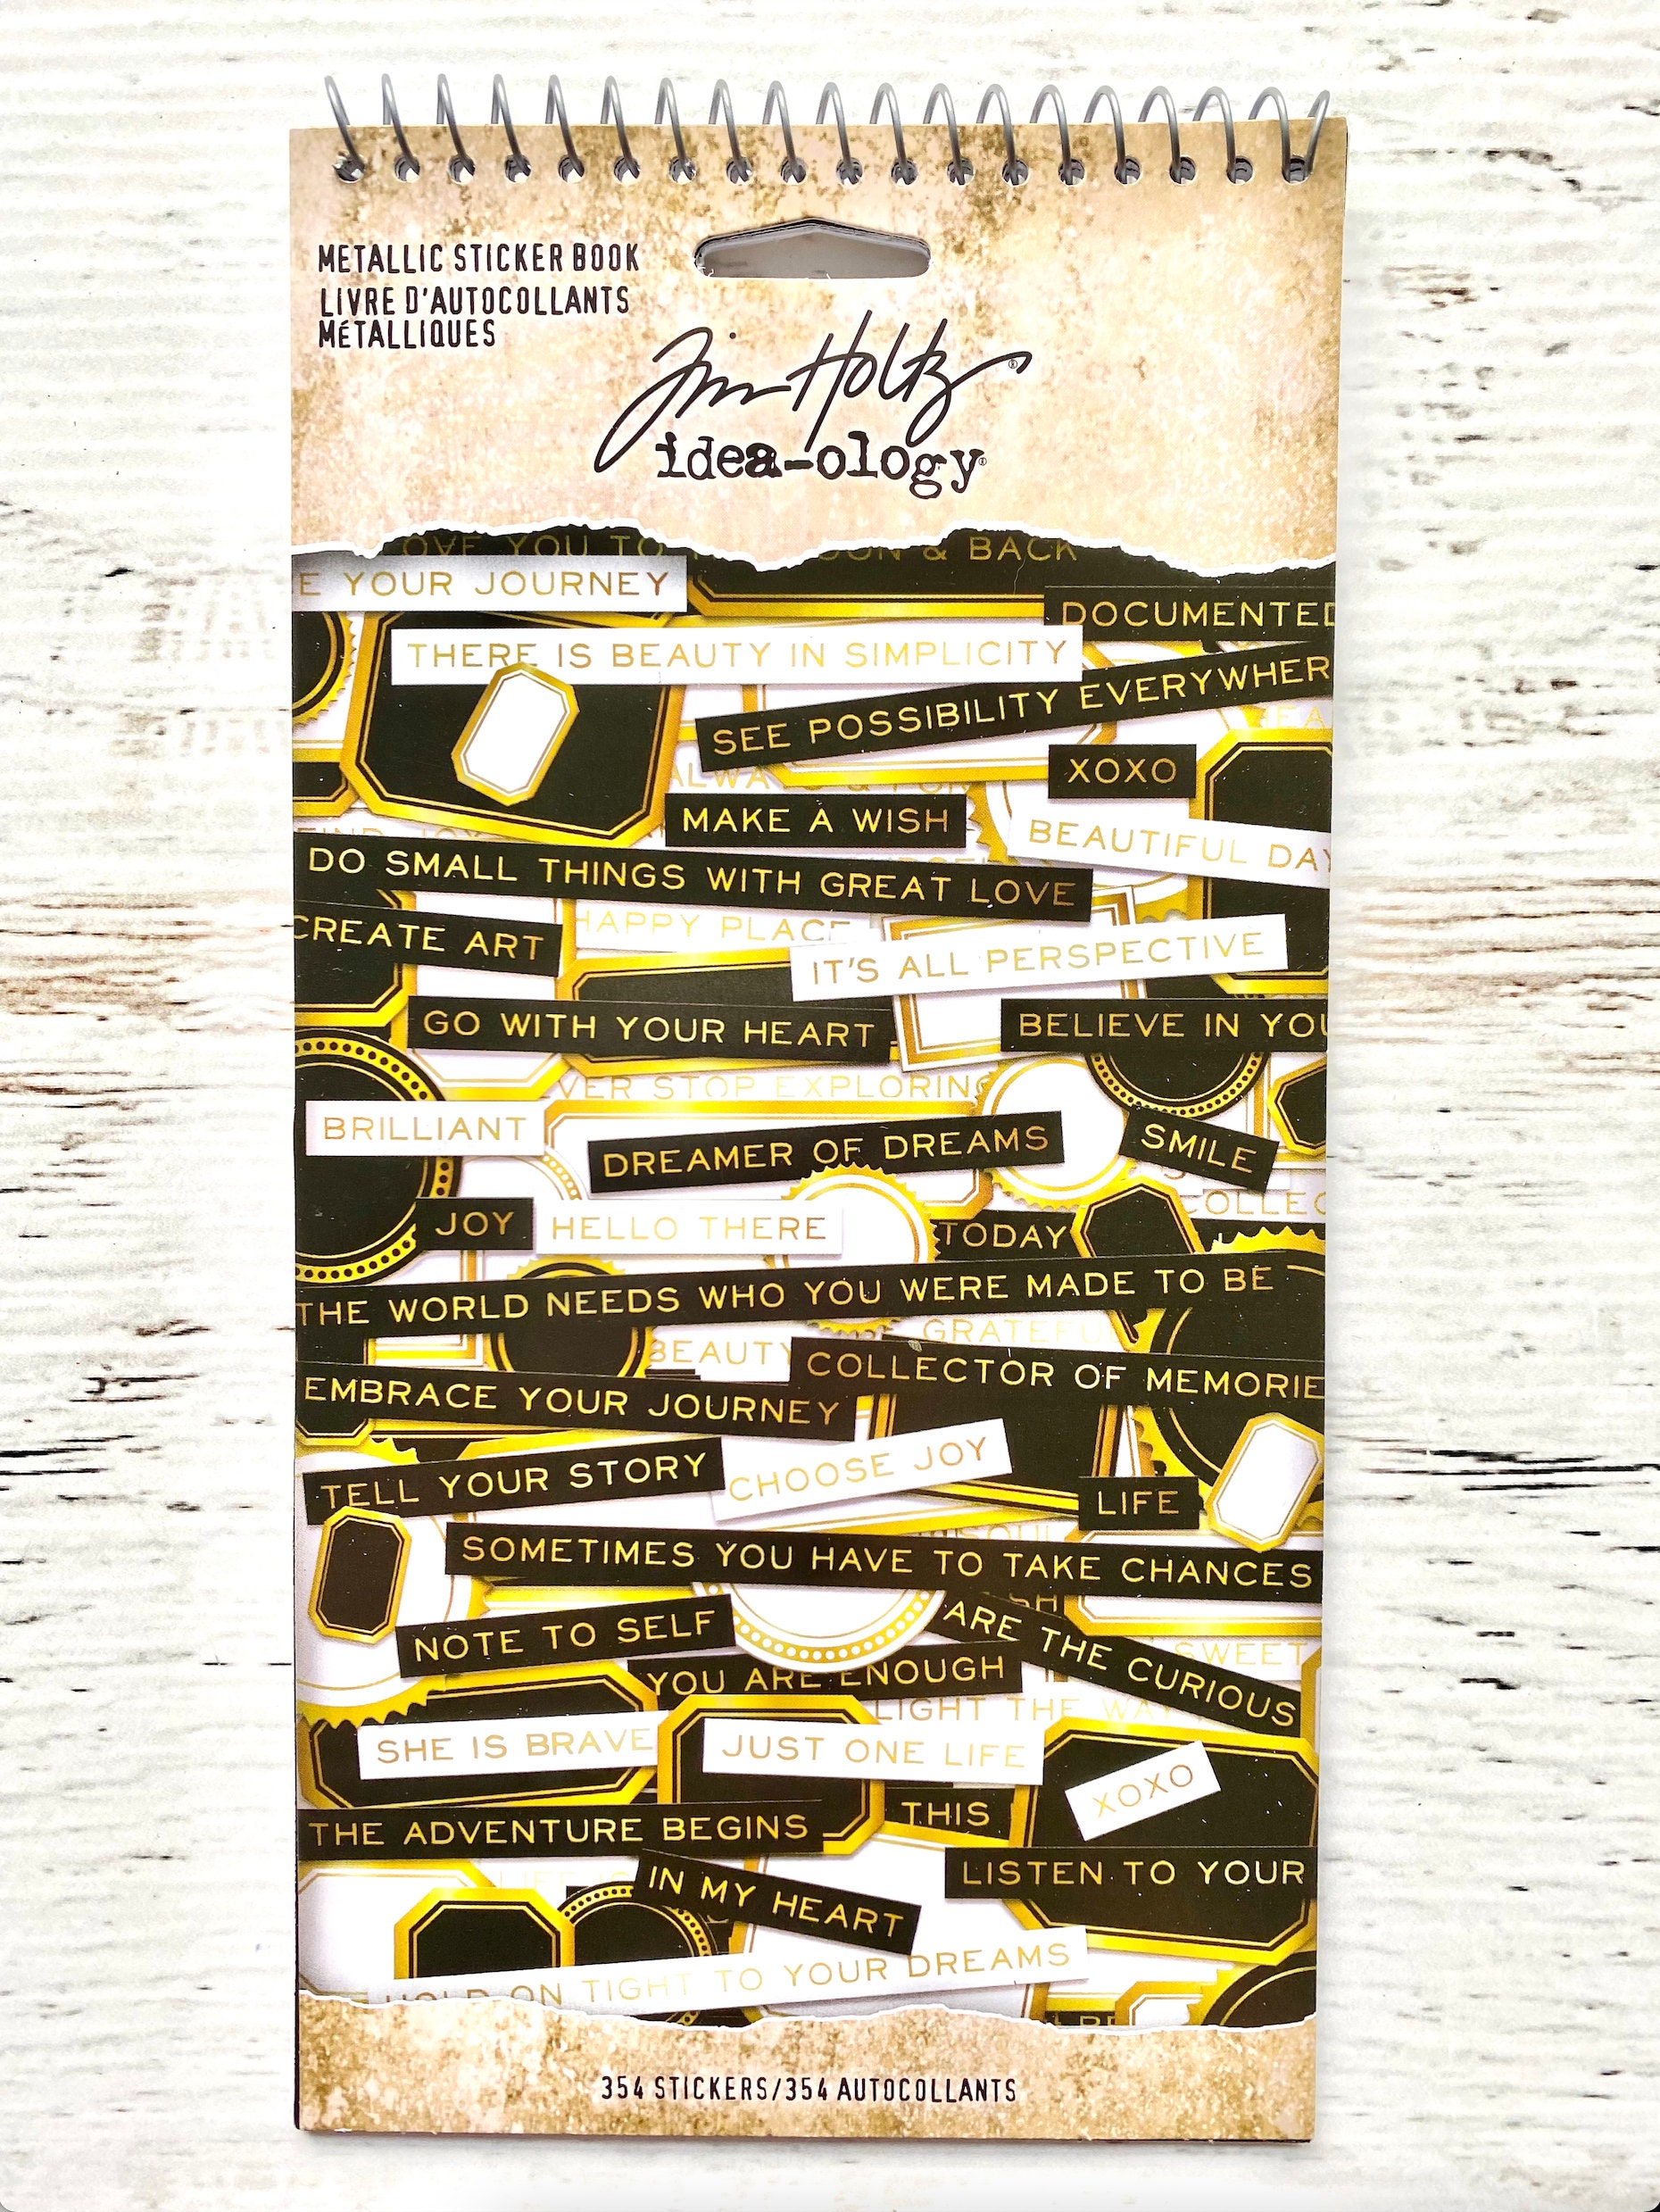 METALLIC STICKER BOOK
LIVRE D'AUTOCOLLANTS
MÉTALLIQUES
Tim Holtz®
idea-ology®
OVE YOU TO & BACK
E YOUR JOURNEY
DOCUMENTED
THERE IS BEAUTY IN SIMPLICITY
SEE POSSIBILITY EVERYWHER
XOXO
MAKE A WISH
BEAUTIFUL DAY
DO SMALL THINGS WITH GREAT LOVE
HAPPY PLACE
CREATE ART
IT'S ALL PERSPECTIVE
GO WITH YOUR HEART
BELIEVE IN YOU
VER STOP EXPLORING
BRILLIANT
DREAMER OF DREAMS
SMILE
COLLEC
JOY
HELLO THERE
TODAY
THE WORLD NEEDS WHO YOU WERE MADE TO BE
GRATEFU
BEAUTY
COLLECTOR OF MEMORIE
EMBRACE YOUR JOURNEY
TELL YOUR STORY
CHOOSE JOY
LIFE
SOMETIMES YOU HAVE TO TAKE CHANCES
NOTE TO SELF
ARE THE CURIOUS
SWEET
YOU ARE ENOUGH
LIGHT THE WA
SHE IS BRAVE
JUST ONE LIFE
XOXO
THE ADVENTURE BEGINS
THIS
IN MY HEART
LISTEN TO YOUR
HOLD ON TIGHT TO YOUR DREAMS
354 STICKERS/354 AUTOCOLLANTS